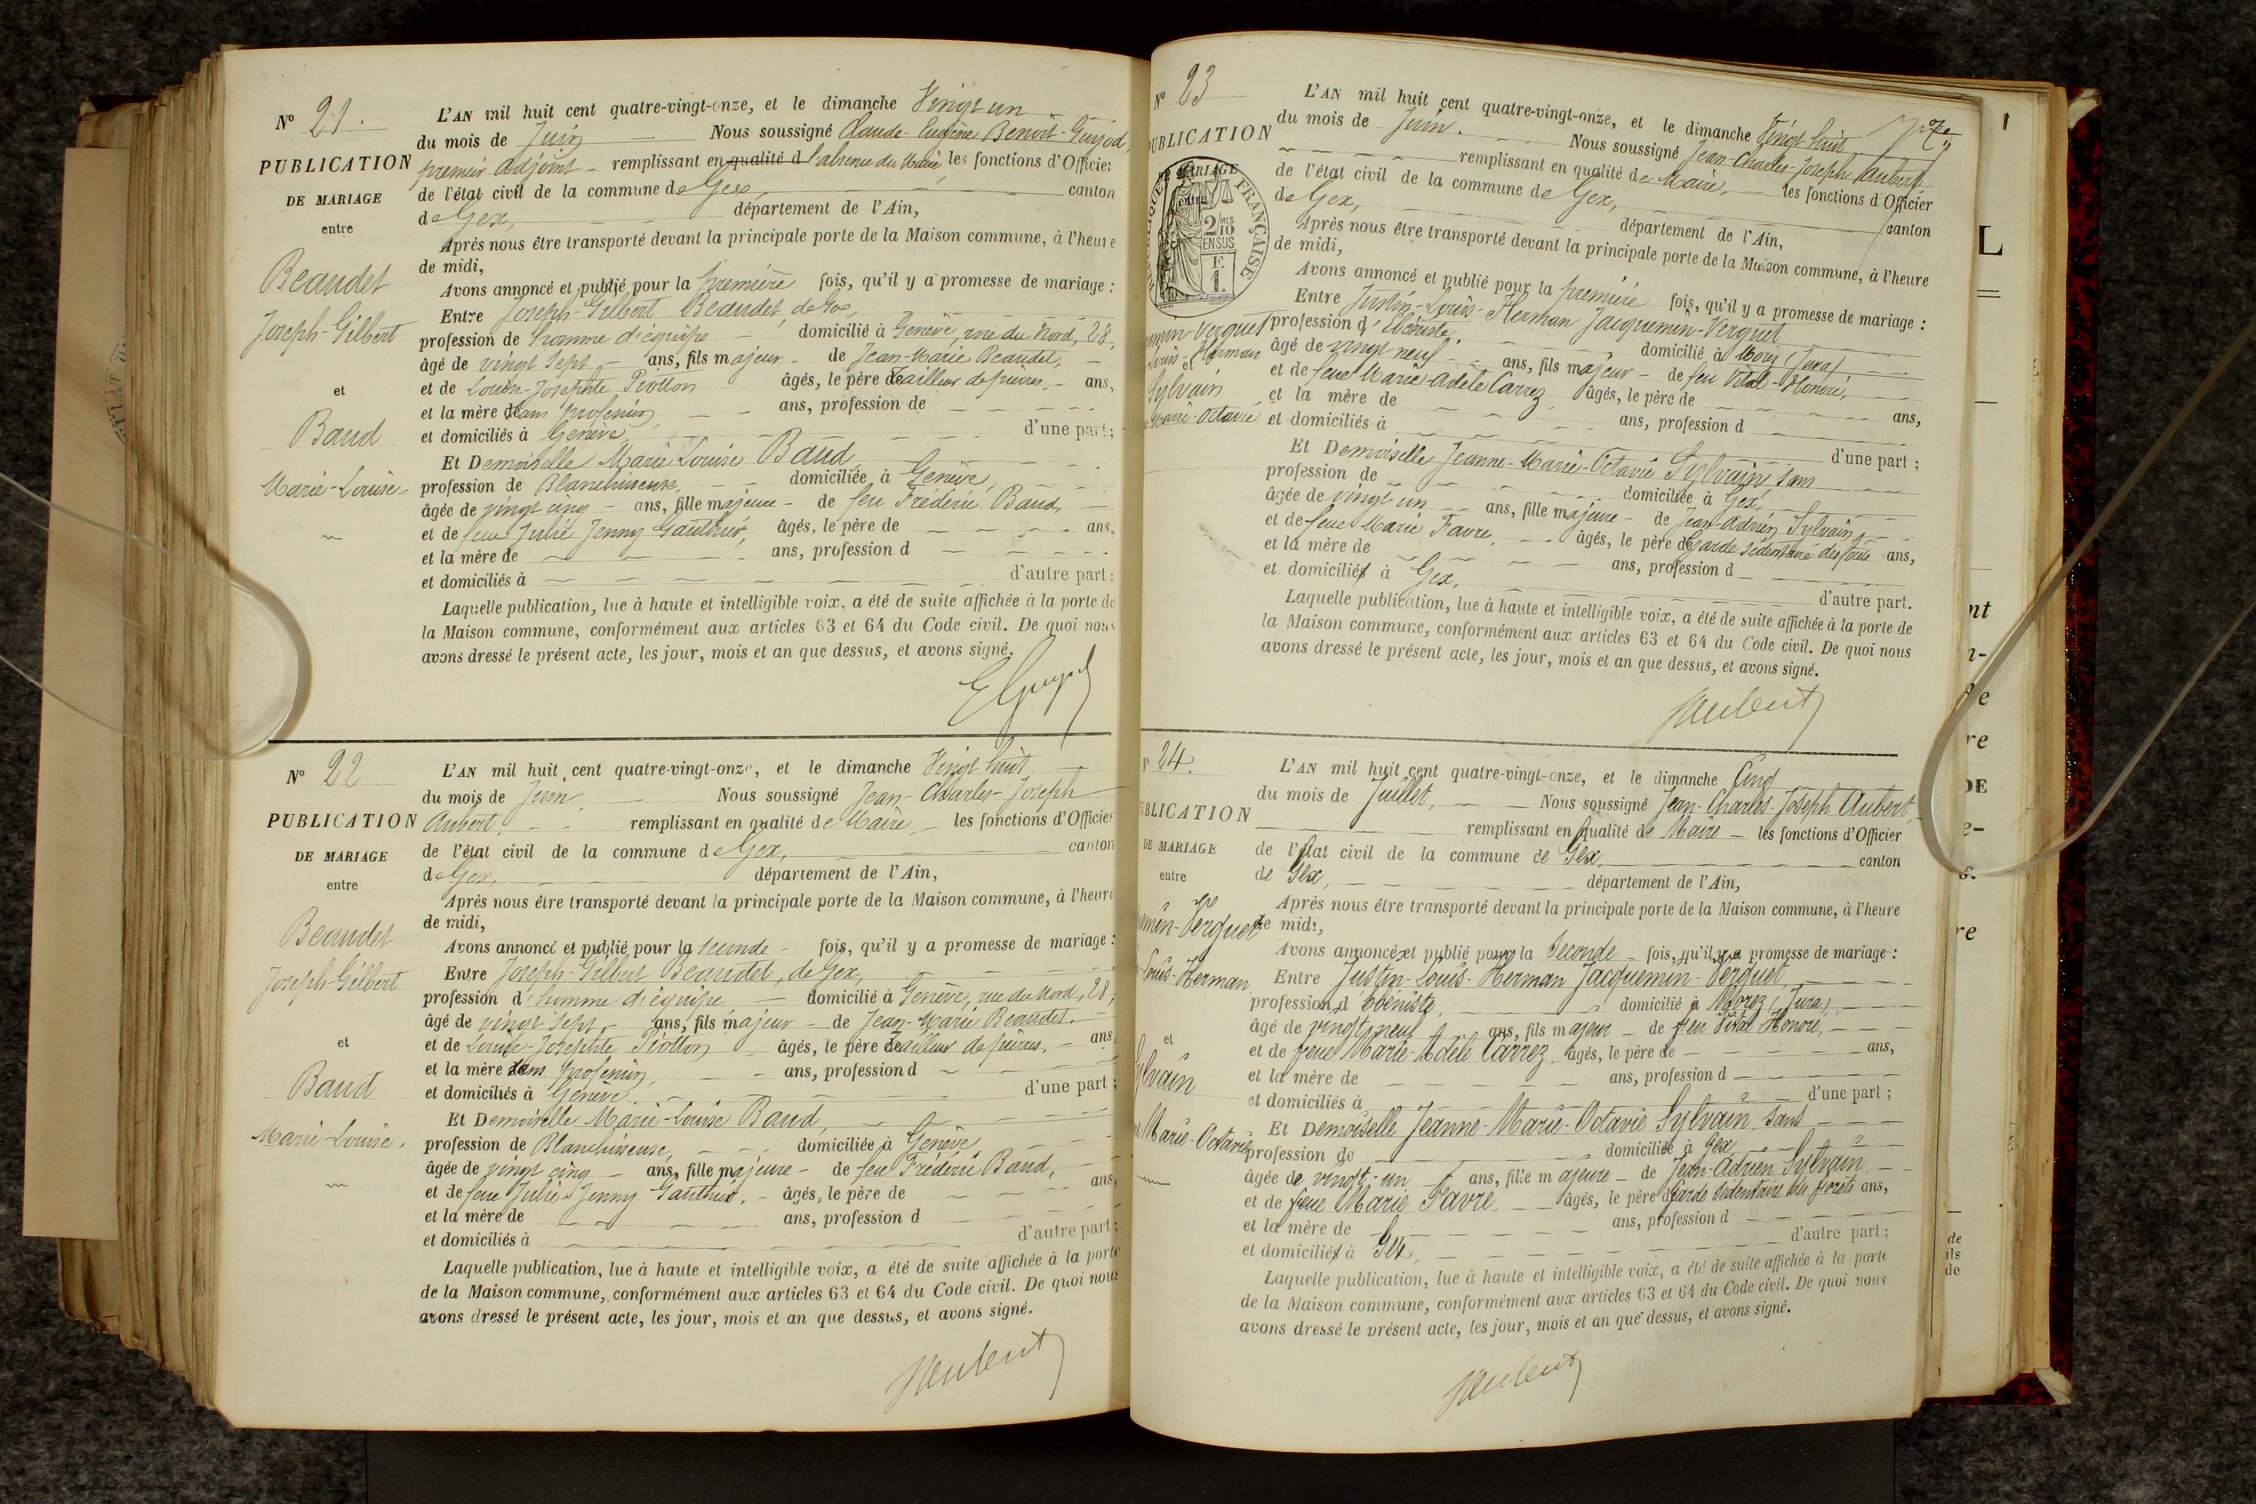 N° 21.
PUBLICATION
DE MARIAGE
entre
Beaudet
Joseph-Gilbert
et
Baud
Marie-Louise
L'AN mil huit cent quatre-vingt-onze, et le dimanche Vingt un
du mois de Juin Nous soussigné Claude-Eugène Benoit-Gonjod,
premier adjoint remplissant en qualité d l'absence du Maire, les fonctions d'Officier
de l'état civil de la commune de Gex, canton
de Gex, département de l'Ain,
Après nous être transporté devant la principale porte de la Maison commune, à l'heure
de midi,
Avons annoncé et publié pour la première fois, qu'il y a promesse de mariage :
Entre Joseph-Gilbert Beaudet, de Gex,
profession de homme d'équipe domicilié à Genève, rue du Nord, 28,
âgé de vingt sept ans, fils majeur de Jean-Marie Beaudet,
et de Louise-Josephte Piotton âgés, le père tailleur de pierres, ans,
et la mère sans profession ans, profession de
et domiciliés à Genève d'une part;
Et Demoiselle Marie Louise Baud
profession de Blanchisseuse, domiciliée à Genève,
âgée de vingt cinq ans, fille majeure de feu Frédéric Baud,
et de feue Julie Jenny Gauthier, âgés, le père de ans,
et la mère de ans, profession d
et domiciliés à d'autre part:
Laquelle publication, lue à haute et intelligible voix, a été de suite affichée à la porte de
la Maison commune, conformément aux articles 63 et 64 du Code civil. De quoi nous
avons dressé le présent acte, les jour, mois et an que dessus, et avons signé.
N° 22
PUBLICATION
DE MARIAGE
entre
Beaudet
Joseph-Gilbert
et
Baud
Marie-Louise.
L'AN mil huit cent quatre-vingt-onze, et le dimanche Vingt huit
du mois de Juin Nous soussigné Jean-Charles-Joseph
Aubert, remplissant en qualité de Maire, les fonctions d'Officier
de l'état civil de la commune de Gex, canton
de Gex, département de l'Ain,
Après nous être transporté devant la principale porte de la Maison commune, à l'heure
de midi,
Avons annoncé et publié pour la seconde fois, qu'il y a promesse de mariage :
Entre Joseph-Gilbert Beaudet, de Gex,
profession d'homme d'équipe domicilié à Genève, rue du Nord, 28,
âgé de vingt sept, ans, fils majeur de Jean-Marie Beaudet.
et de Louise-Josephte Piotton âgés, le père tailleur de pierres, ans,
et la mère sans profession, ans, profession d
et domiciliés à Genève. d'une part;
Et Demoiselle Marie-Louise Baud,
profession de Blanchisseuse, domiciliée à Genève
âgée de vingt cinq ans, fille majeure de feu Frédéric Baud,
et de feue Julie Jenny Gauthier, âgés, le père de ans,
et la mère de ans, profession d
et domiciliés à d'autre part;
Laquelle publication, lue à haute et intelligible voix, a été de suite affichée à la porte
de la Maison commune, conformément aux articles 63 et 64 du Code civil. De quoi nous
avons dressé le présent acte, les jour, mois et an que dessus, et avons signé.
JAubert
N° 23
PUBLICATION
DE MARIAGE
entre
FRANÇAISE
2/10
EN SUS
F.
1.
Verguet
Louis-Herman
et
Sylvain
Marie-Octavie
L'AN mil huit cent quatre-vingt-onze, et le dimanche Vingt huit
du mois de Juin. Nous soussigné Jean-Charles-Joseph Aubert
remplissant en qualité de Maire, les fonctions d'Officier
de l'état civil de la commune de Gex, canton
de Gex, département de l'Ain,
Après nous être transporté devant la principale porte de la Maison commune, à l'heure
de midi,
Avons annoncé et publié pour la première fois, qu'il y a promesse de mariage :
Entre Justin-Louis-Herman Jacquemin-Verguet
profession d'ébéniste domicilié à Morez (Jura)
âgé de vingt neuf ans, fils majeur de feu Vital-Honoré,
et de feue Marie-Adèle Carrez âgés, le père de
et la mère de ans, profession d ans,
et domiciliés à d'une part;
Et Demoiselle Jeanne-Marie-Octavie Sylvain, sans
profession de domiciliée à Gex,
âgée de vingt un ans, fille majeure de Jean-Adrien Sylvain,
et de feue Marie Favre, âgés, le père de Garde sédentaire des forêts ans,
et la mère de ans, profession d
et domiciliés à Gex, d'autre part.
Laquelle publication, lue à haute et intelligible voix, a été de suite affichée à la porte de
la Maison commune, conformément aux articles 63 et 64 du Code civil. De quoi nous
avons dressé le présent acte, les jour, mois et an que dessus, et avons signé.
JAubert
24.
PUBLICATION
DE MARIAGE
entre
Verguet
Louis-Herman
et
Sylvain
Marie-Octavie
L'AN mil huit cent quatre-vingt-onze, et le dimanche Cinq
du mois de Juillet, Nous soussigné Jean-Charles-Joseph Aubert,
remplissant en qualité de Maire les fonctions d'Officier
de l'état civil de la commune de Gex canton
de Gex, département de l'Ain,
Après nous être transporté devant la principale porte de la Maison commune, à l'heure
de midi,
Avons annoncé et publié pour la seconde fois, qu'il y a promesse de mariage :
Entre Justin-Louis-Herman Jacquemin-Verguet,
profession d'ébéniste, domicilié à Morez (Jura),
âgé de vingt neuf ans, fils majeur de feu Vital Honoré,
et de feue Marie-Adèle Carrez âgés, le père de ans,
et la mère de ans, profession d
et domiciliés à d'une part;
Et Demoiselle Jeanne-Marie-Octavie Sylvain, sans
profession de domiciliée à Gex
âgée de vingt-un ans, fille majeure de Jean-Adrien Sylvain
et de feue Marie Favre âgés, le père d Garde sédentaire des forêts ans,
et la mère de ans, profession d
et domiciliés à Gex, d'autre part;
Laquelle publication, lue à haute et intelligible voix, a été de suite affichée à la porte
de la Maison commune, conformément aux articles 63 et 64 du Code civil. De quoi nous
avons dressé le présent acte, les jour, mois et an que dessus, et avons signé.
JAubert